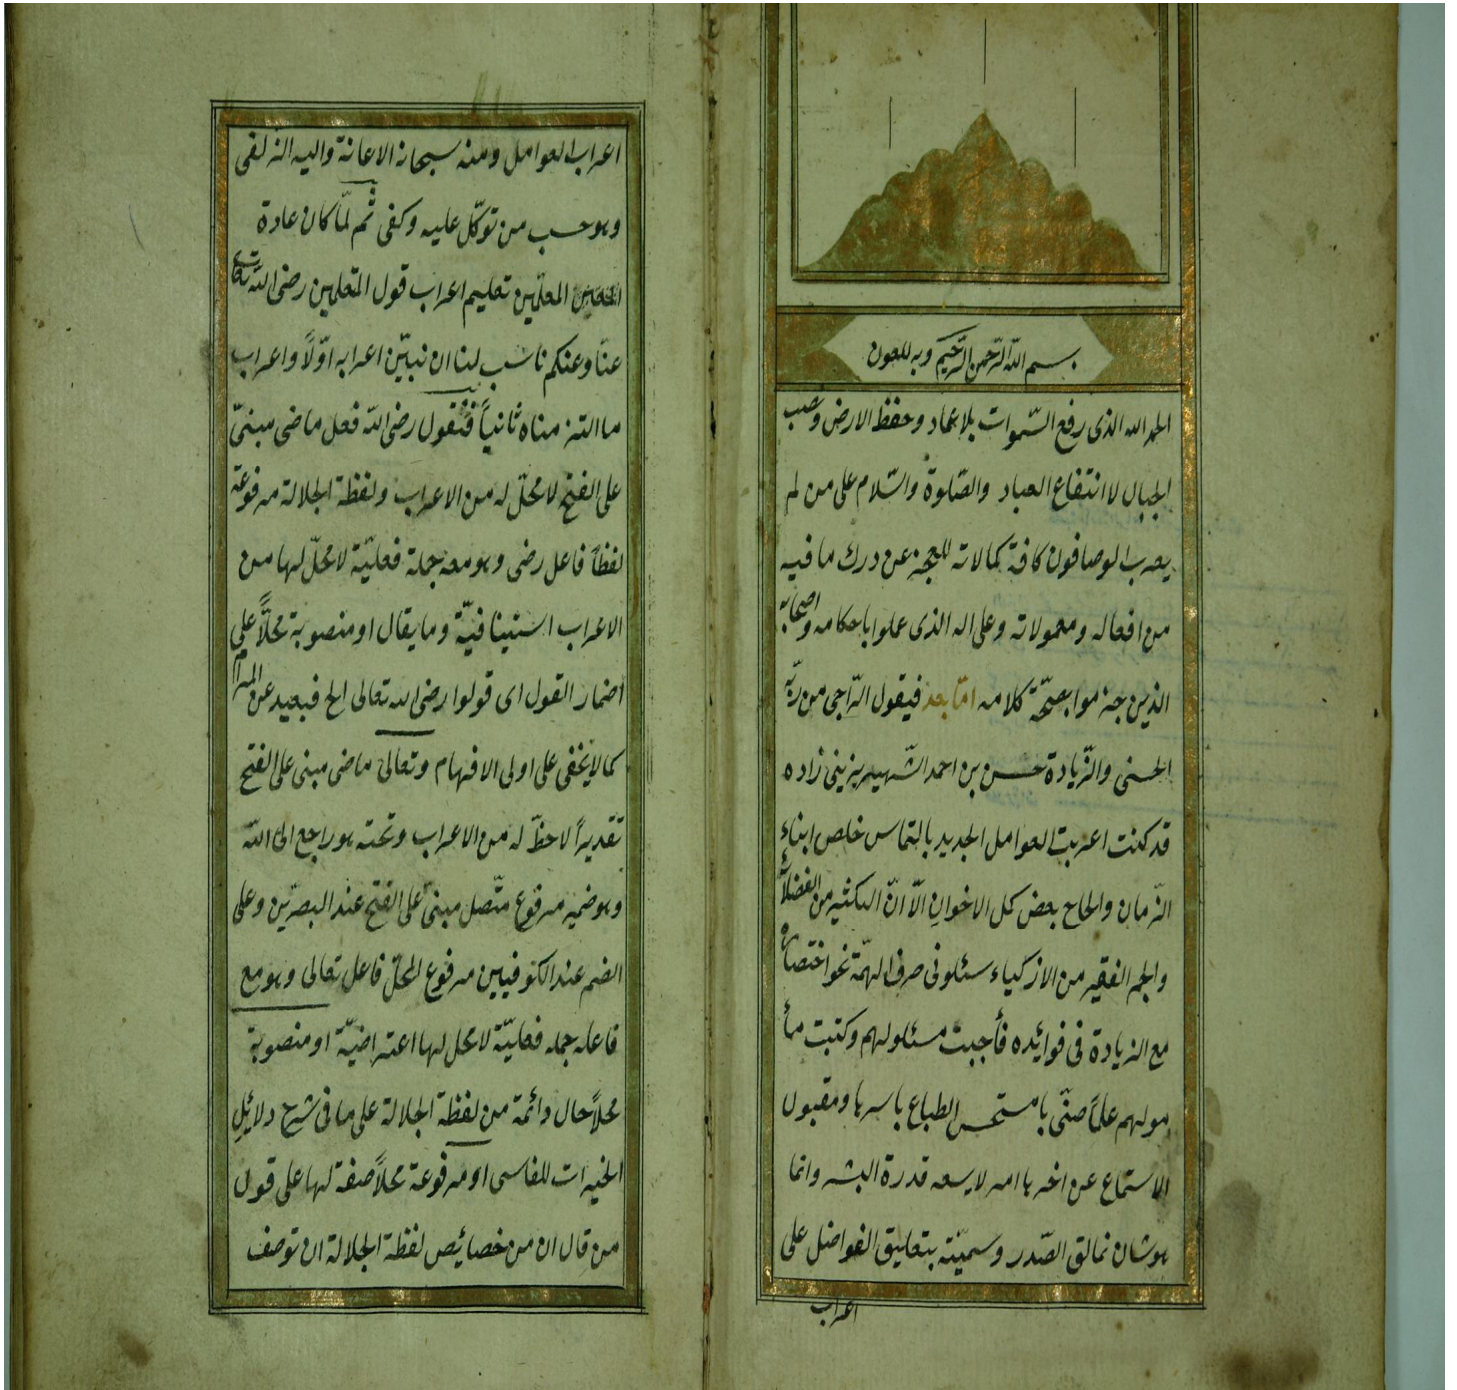 بسم الله الرحمن الرحيم وبه للعون
الحمد لله الذى رفع السّموات بلا عماد وحفظ الارض ونصب
الجبال لانتفاع العباد والصّلوة والسّلام على من لم
يعرب الوصافون كافة كمالاته للعجز عن درك ما فيه
من افعاله ومعمولاته وعلى اله الذى عملوا باحكامه واصحابه
الذين جزموا بصحّة كلامه امّا بعد فيقول الرّاجى من ربّه
الحسنى والزّيادة حسن بن احمد الشّهير بزينى زاده
قد كنت اعربت العوامل الجديد بالتماس خلص ابناء
الزّمان والحاح بعض كمل الاخوان الّا انّ الكثير من الفضلاء
والجم الفقير من الازكياء سئلونى صرف الهمّة نحو اختصاره
مع الزيادة فى فوائده فأجبت مسئولهم وكتبت مأ
مولهم علماً منّى بان مستحسن الطباع باسرها ومقبول
الاستماع عن اخرها امر لا يسعه قدرة البشر وانما
هو شان خالق الصّدر وسمّيته بتعليق الفواضل على
اعراب
اعراب العوامل ومنه سبحانه الاعانة واليه الزلفى
وهو حسب من توكّل عليه وكفى ثم لمّا كان عادة
المعلّمين تعليم اعراب قول المتعلمين رضى الله تعالى
عنّا وعنكم ناسب لنا ان نبيّن اعرابه اوّلاً واعراب
ما التزمناه ثانياً فنقول رضى الله فعل ماضى مبنىّ
على الفتح لا محلّ له من الاعراب ولفظة الجلالة مرفوعة
لفظاً فاعل رضى وهو معه جملة فعليّة لا محلّ لها من
الاعراب استينافيّة وما يقال او منصوبة محلاًّ على
اضمار القول اى قولوا رضى الله تعالى الخ فبعيد عن المرام
كما لا يخفى على اولى الافهام وتعالى ماضى مبنى على الفتح
تقديراً لا حظّ له من الاعراب وتحته هو راجع الى الله
وهو ضمير مرفوع متّصل مبنىّ على الفتح عند البصريّين وعلى
الضم عند الكوفيين مرفوع المحلّ فاعل تعالى وهو مع
فاعله جملة فعليّة لا محل لها اعتراضيّة او منصوبة
محلاً حال دائمة من لفظة الجلالة على ما فى شرح دلائل
الخيرات للفاسى او مرفوعة محلاً صفة لها على قول
من قال ان من خصائيص لفظة الجلالة ان توصف